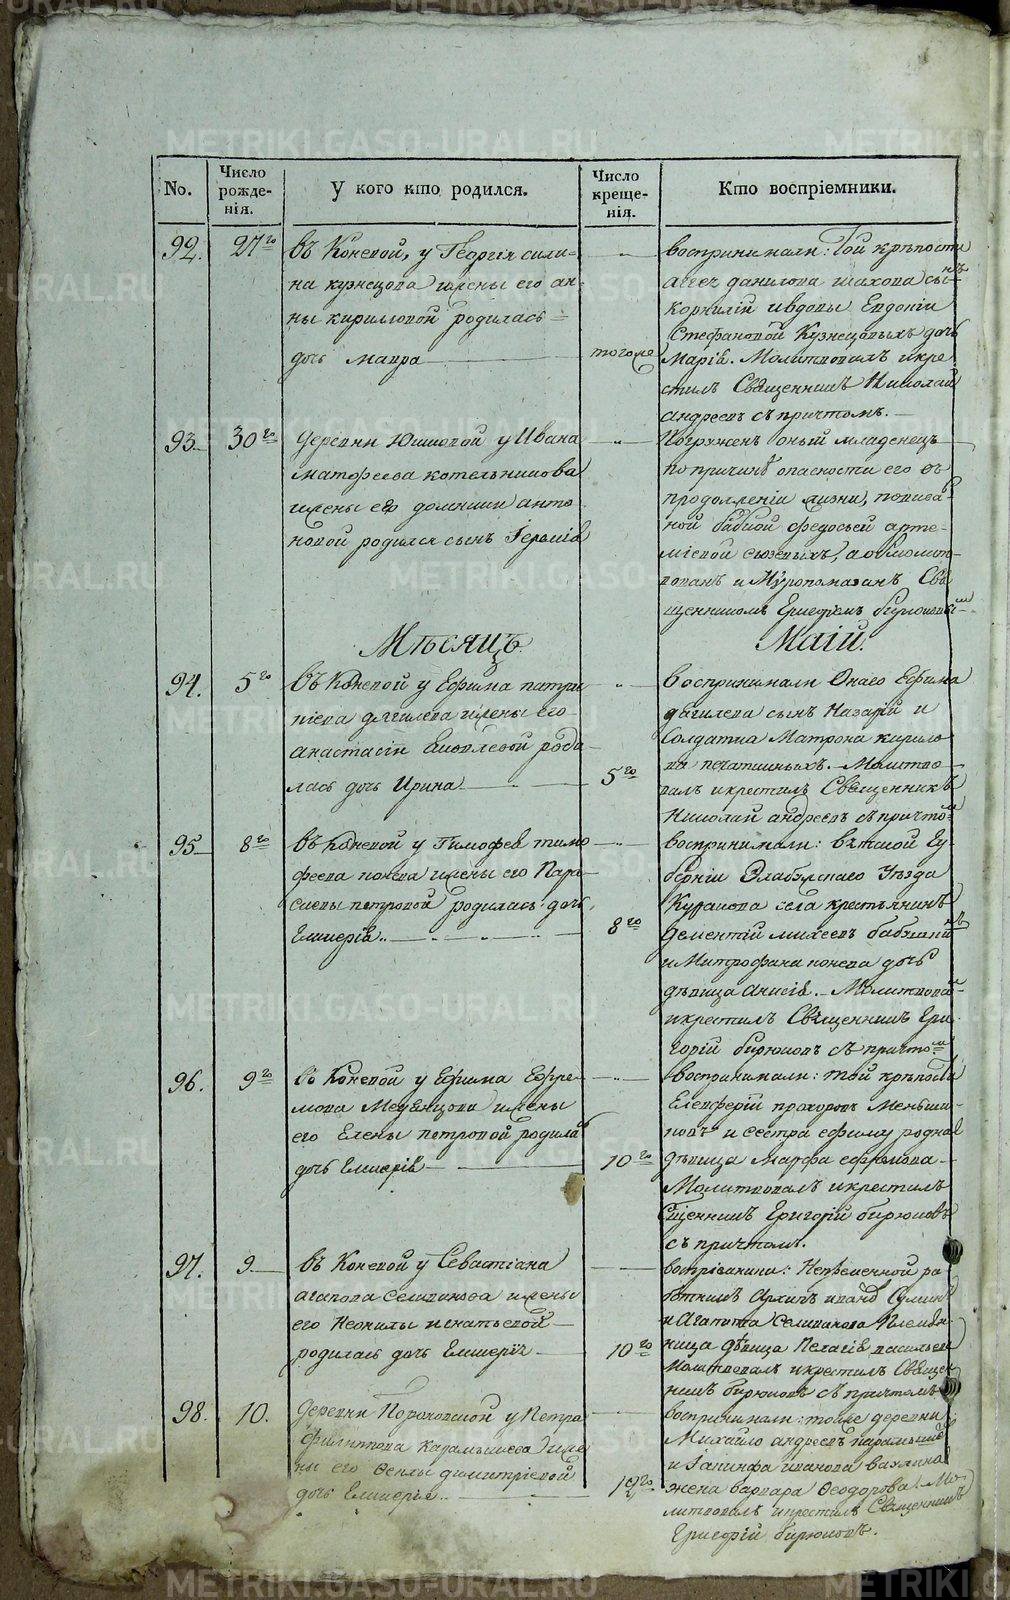 No.
Число рожде-нія.
У кого кто родился.
Число креще-нія.
Кто воспріемники.
92.
27го
въ Коневой, у Георгія сили-
на кузнецова жены его ан-
ны кириловой родилась
дочь мавра
тогоже
воспринимали: Той крѣпости
данилова шахова сынъ
Корнилій и вдовы Евдокіи
Стефановой Кузнецовыхъ дочь
Марія. Молитвовалъ и кре
стилъ Священникъ Николай
андреевъ съ причтомъ.
93.
30го
Деревни Юшковой у Ивана
матфеева котельникова
жены его домники анто
новой родился сынъ Іеремія
Погруженъ оный младенецъ
по причинѣ опасности его въ
продолженіи жизни, повива
ной бабкой федосьей арте-
міевой сюзевыхъ, а обмолит-
вованъ и Мѵропомазанъ Свя
щенникомъ
Мѣсяцъ
Маій.
94.
5го
въ Коневой у Ефима патри
кіева дягилева жены его
анастасіи Яковлевой роди-
лась дочь Ирина
5го
воспринимали Онаго Ефима
дягилева сынъ Назарій и
Солдатка Матрона кирило
ва Молитво
валъ и крестилъ Священникъ
Николай андреевъ съ причтомъ
95
8го
въ Коневой у Тимофея тимо
феева конева жены его Пара-
скевы петровой родилась дочь
Гликерія
8го
воспринимали: вятской Гу-
берніи Элабужскаго Уѣзда
села крестьянинъ
Дементій михеевъ
и Митрофана конева дочь
дѣвица анисія. Молитвовалъ
и крестилъ Священникъ Гри-
горій бирюковъ съ причтомъ
96.
9го
въ Коневой у Ефима Ефре-
мова Медвѣдцова жены
его Елены петровой родилась
дочь Гликерія
10го
воспринимали: той крѣпости
Елевферій прохоровъ Меньши-
ковъ и сестра ефиму родная
дѣвица Марфа ефремова
Молитвовалъ и крестилъ
Священникъ Григорій бирюковъ
съ причтомъ.
97.
9
въ Коневой у Севастіана
агапова Селиванова жены
его Неонилы игнатьевой
родилась дочь Гликерія
10го
Непременной ра
ботникъ Архипъ
и Агапита Селиванова Племян-
ница дѣвица Пелагія васильева
молитвовалъ и крестилъ Священ
никъ бирюковъ съ причтомъ
98.
10.
Деревни у Петра
филиппова карамышева же
ны его Феклы димитріевой
дочь Гликерья
10го
воспринимали: тойже деревни
Михайло андреевъ карамышевъ
и Іакинфа иванова
жена варвара Ѳеодорова. Мо
литвовалъ и крестилъ Священникъ
Григорій бирюковъ.
METRIKI.GASO-URAL.RU